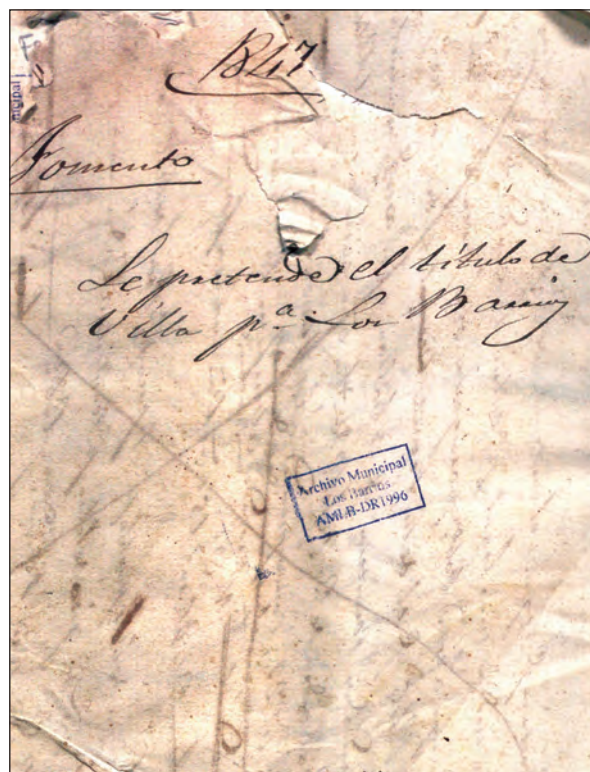 1847
nicipal
Fomento
Se pretende el título de
Villa pª. Los Barrios
Archivo Municipal
Los Barrios
AMLB-DR1996